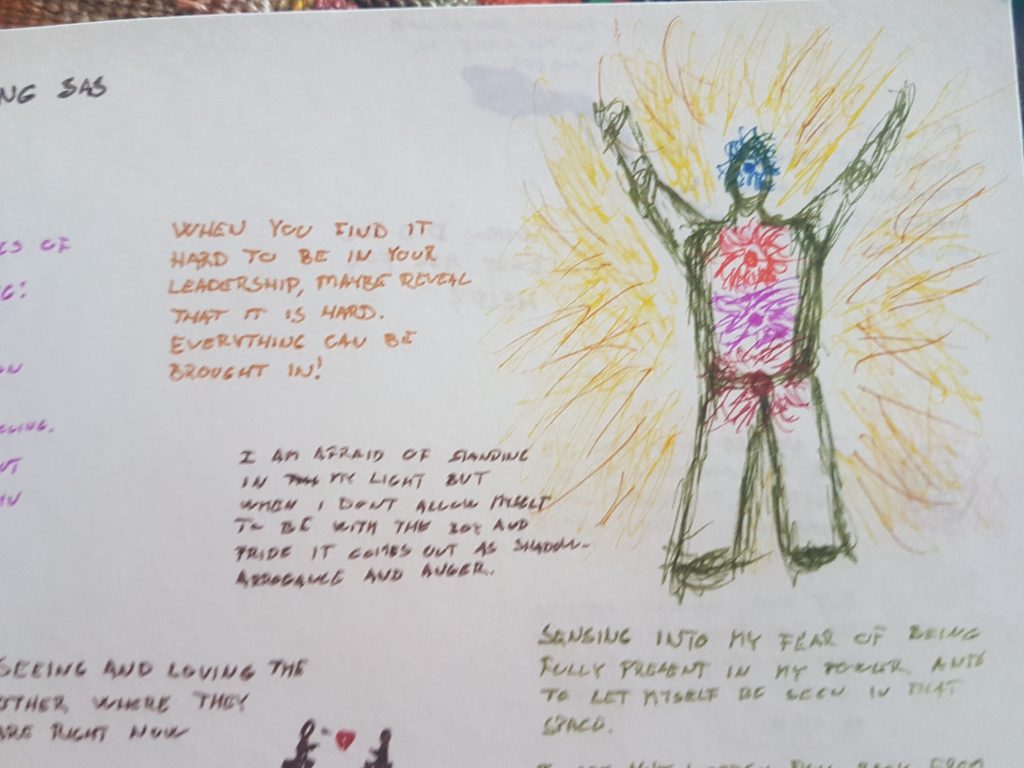 NG SAS
ES OF
G:
WHEN YOU FIND IT
HARD TO BE IN YOUR
LEADERSHIP, MAYBE REVEAL
THAT IT IS HARD.
EVERYTHING CAN BE
BROUGHT IN!
I AM AFRAID OF STANDING
IN MY LIGHT BUT
WHEN I DONT ALLOW MYSELF
TO BE WITH THE JOY AND
PRIDE IT COMES OUT AS SHADOW-
ARROGANCE AND ANGER.
SEEING AND LOVING THE
OTHER WHERE THEY
ARE RIGHT NOW
SENSING INTO MY FEAR OF BEING
FULLY PRESENT IN MY POWER AND
TO LET MYSELF BE SEEN IN THAT
SPACE.